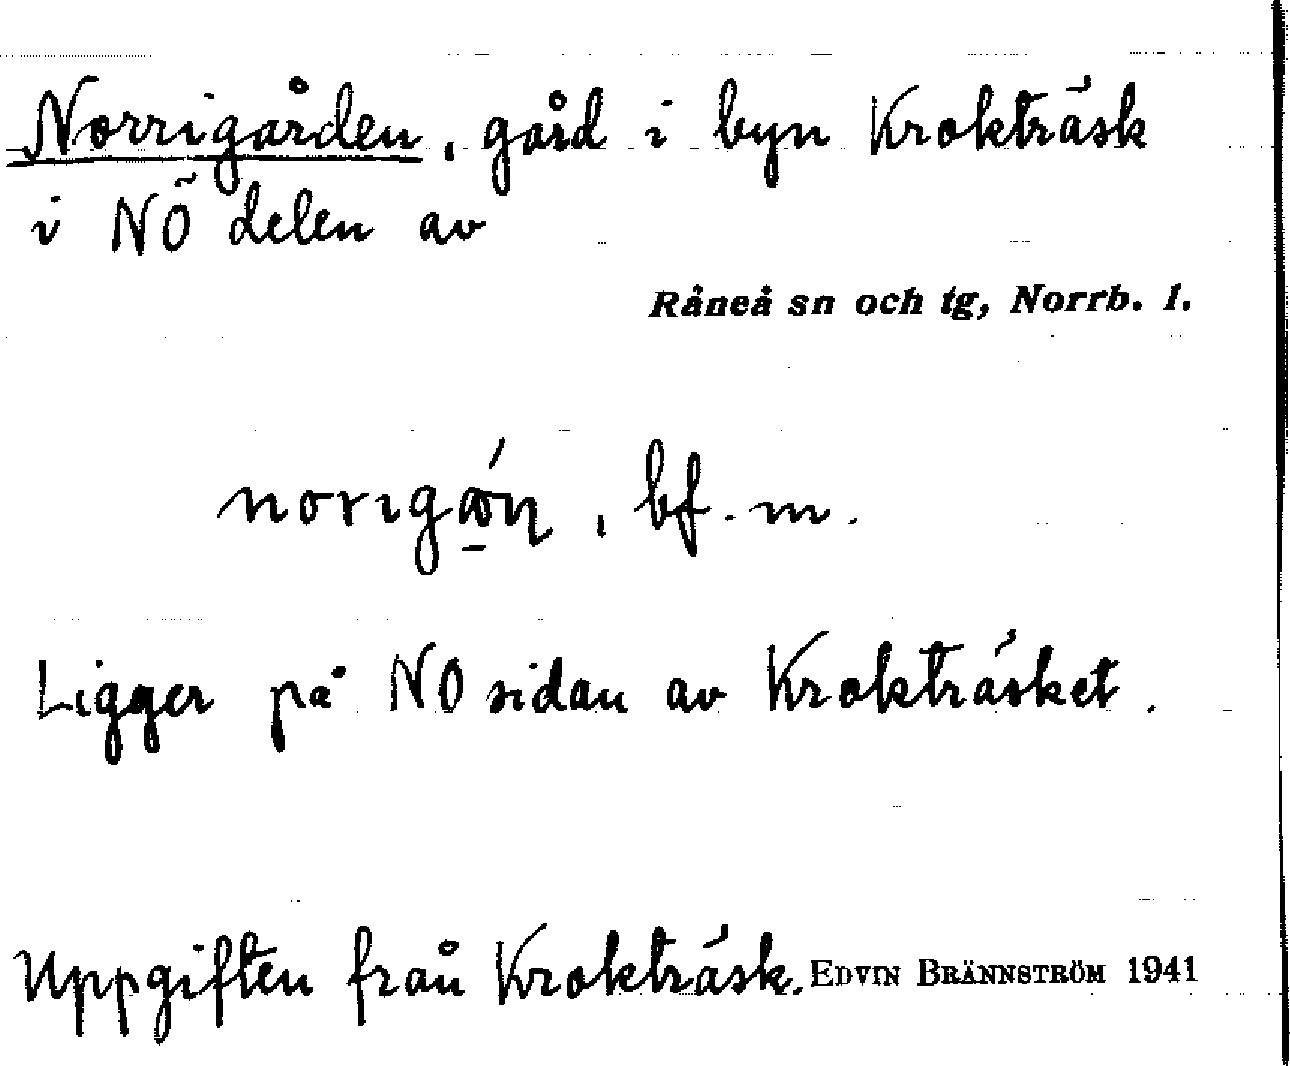 Norrigården, gård i byn Kroktträsk
i NÖ delen av
Råneå sn och tg, Norrb. l.
, bf. m.
Ligger på NO sidan av Kroktträsket.
Uppgiften från Kroktträsk. EDVIN BRÄNNSTRÖM 1941